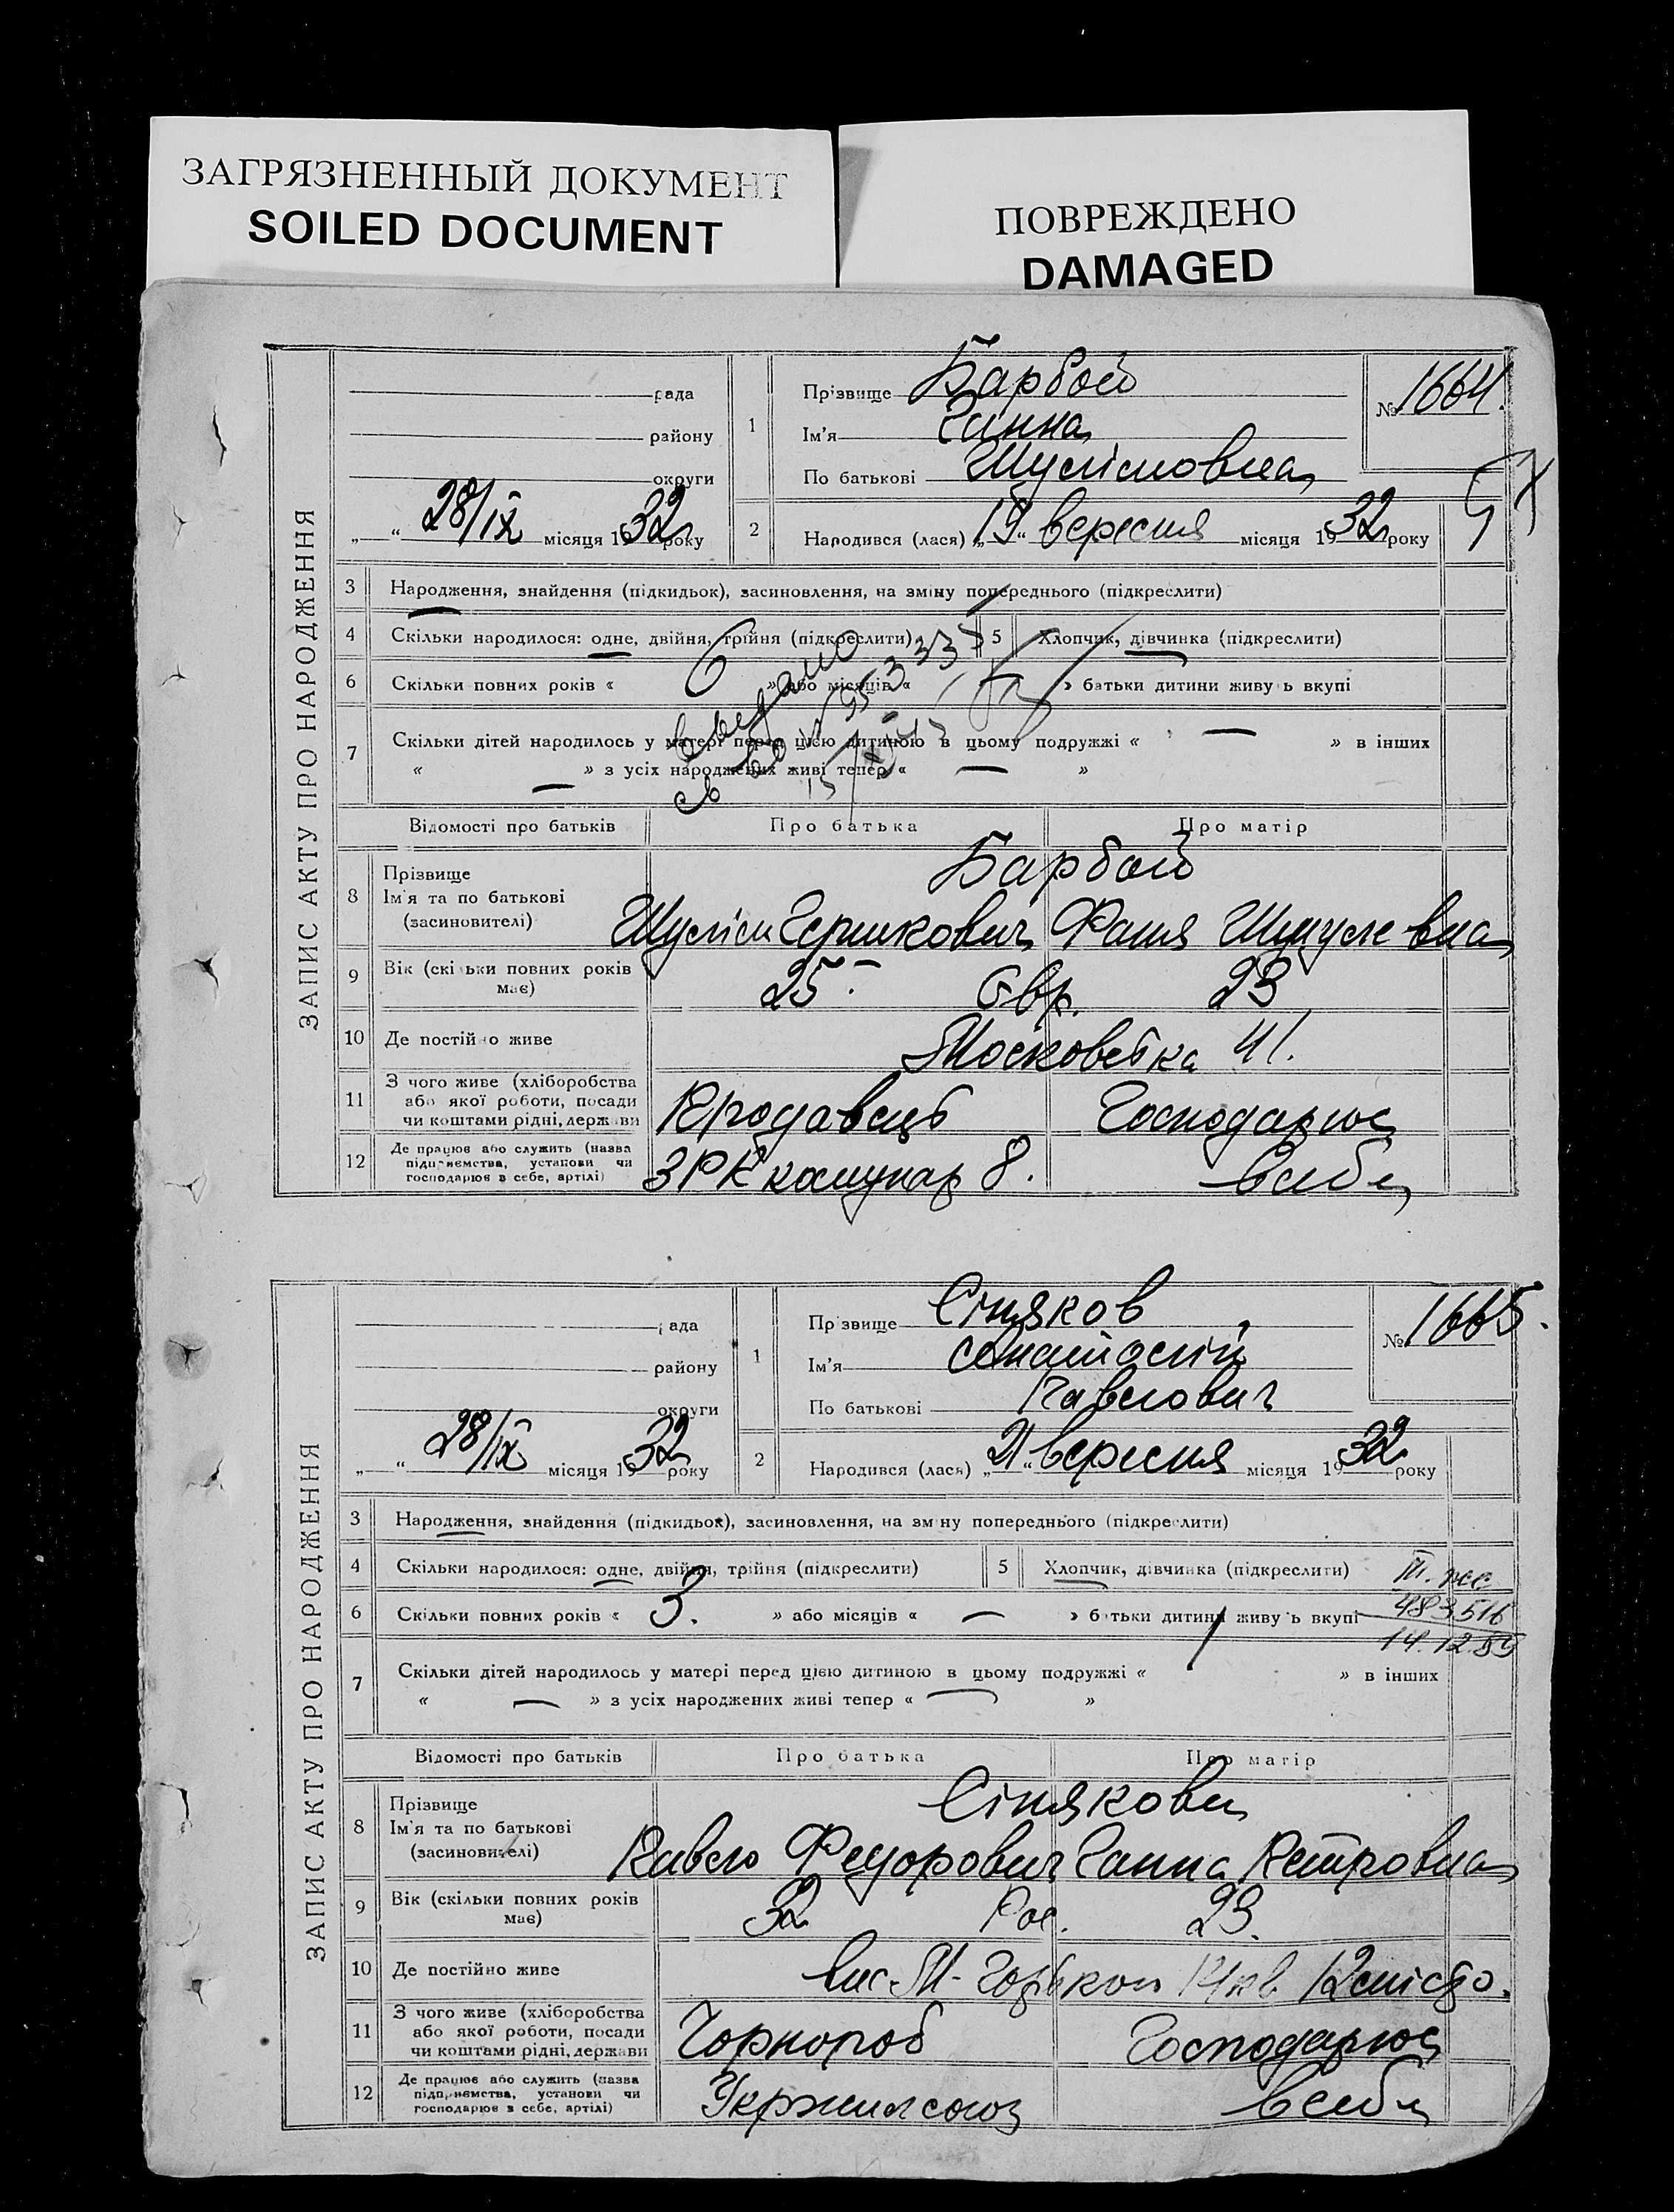 ЗАГРЯЗНЕННЫЙ ДОКУМЕНТ
SOILED DOCUMENT
ПОВРЕЖДЕНО
DAMAGED
ЗАПИС АКТУ ПРО НАРОДЖЕННЯ
рада
району
округи
„ “ 28/IX місяця 1932 року
1
Прізвище Барбой
Ім'я Ганна
По батькові Шулімовна
№ 1664.
2 Народився (лася) „19“ вересня місяця 1932 року
3 Народження, знайдення (підкидьок), засиновлення, на зміну попереднього (підкреслити)
4 Скільки народилося: одне, двійня, трійня (підкреслити) 5 Хлопчик, дівчинка (підкреслити)
6 Скільки повних років « 6 » або місяців « — » батьки дитини живуть вкупі
7 Скільки дітей народилось у матері перед цією дитиною в цьому подружжі « — » в інших
« — » з усіх народжених живі тепер « — »
Відомості про батьків Про батька Про матір
8 Прізвище
Ім'я та по батькові
(засновителі)
Барбой
Шулім Гершкович Фаня Шмулевна
9 Вік (скільки повних років має) 25 Євр. 23
10 Де постійно живе Московська 41.
11 З чого живе (хліборобства
або якої роботи, посади
чи коштами рідні, держави
Продавець Господарює
12 Де працює або служить (назва
підприємства, установи чи
господарює в себе, артілі)
ЗРК комунар 8. в себе
ЗАПИС АКТУ ПРО НАРОДЖЕННЯ
рада
району
округи
„ “ 28/IX місяця 1932 року
1
Прізвище Сіняков
Ім'я Анатолій
По батькові Павлович
№ 1665.
2 Народився (лася) „21“ вересня місяця 1932 року
3 Народження, знайдення (підкидьок), засиновлення, на зміну попереднього (підкреслити)
4 Скільки народилося: одне, двійня, трійня (підкреслити) 5 Хлопчик, дівчинка (підкреслити)
6 Скільки повних років « 3. » або місяців « — » батьки дитини живуть вкупі
483516
14.12.89
7 Скільки дітей народилось у матері перед цією дитиною в цьому подружжі « 1 » в інших
« — » з усіх народжених живі тепер « — »
Відомості про батьків Про батька Про матір
8 Прізвище
Ім'я та по батькові
(засиновителі)
Сінякови
Павло Федорович Ганна Петровна
9 Вік (скільки повних років має) 32 Рос. 23.
10 Де постійно живе вис. М-Горького 14 кв.
11 З чого живе (хліборобства
або якої роботи, посади
чи коштами рідні, держави
Чорнороб Господарює
12 Де працює або служить (назва
підприємства, установи чи
господарює в себе, артілі)
Укржилсоюз в себе